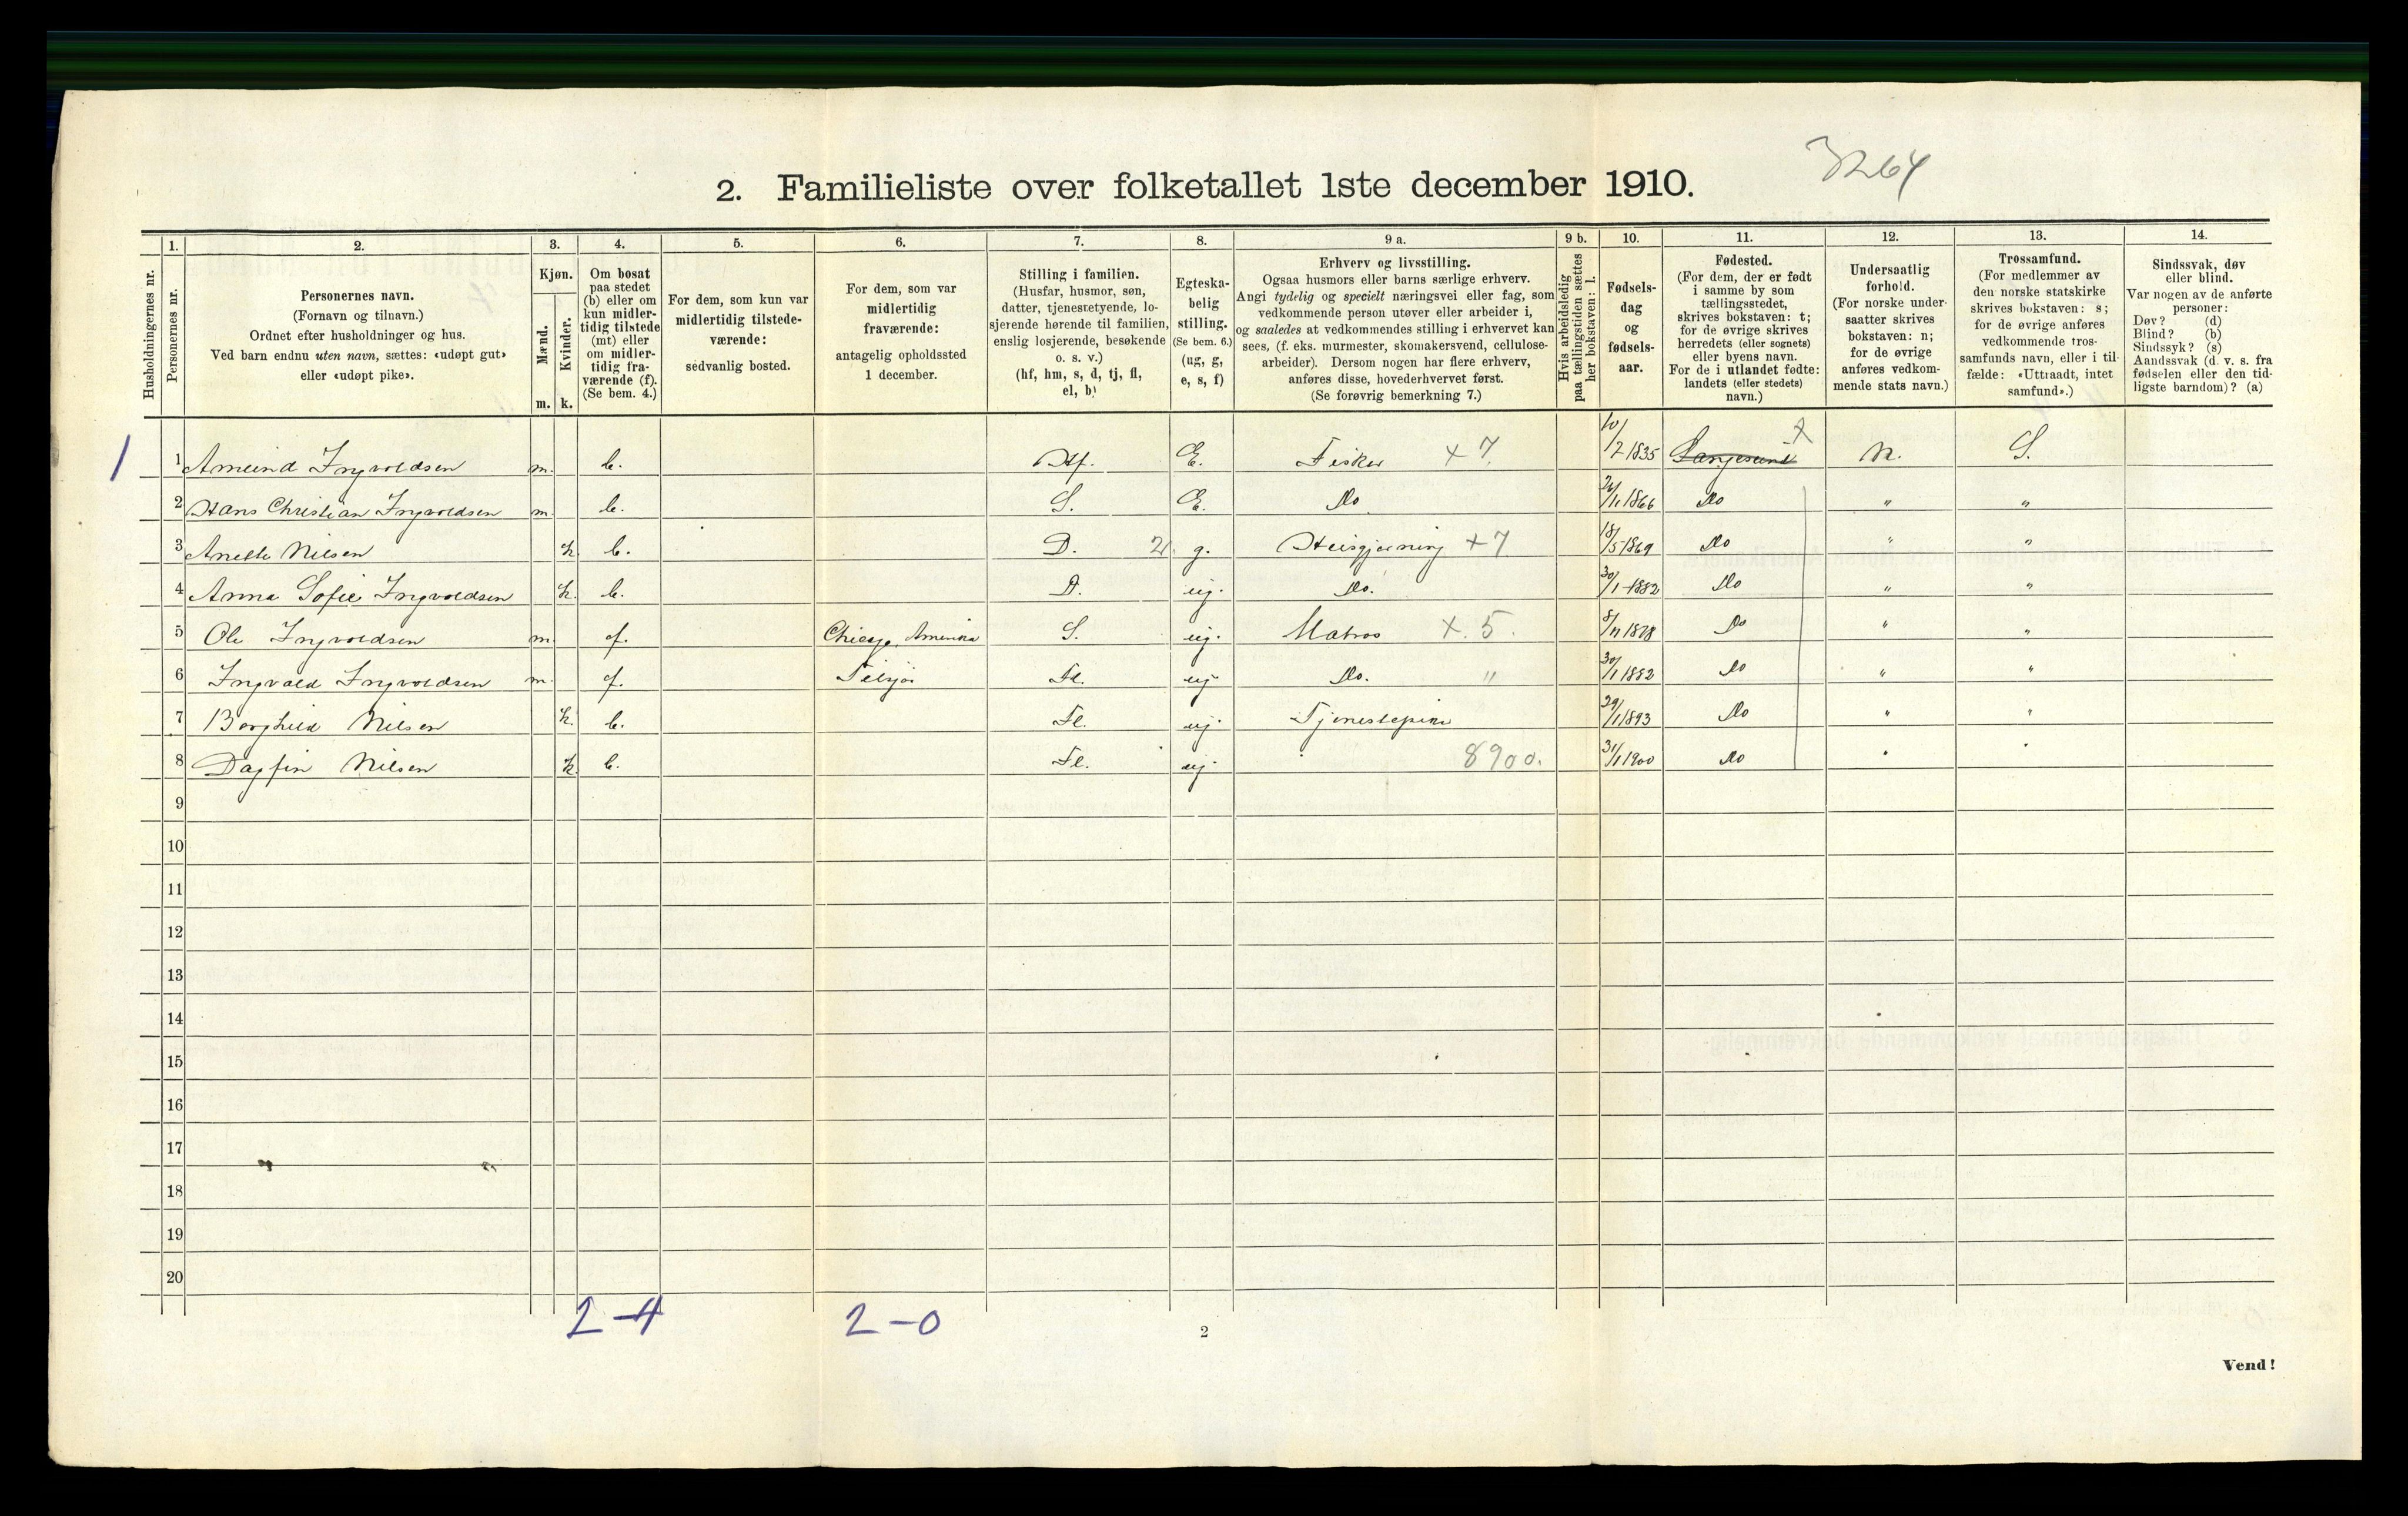 3264
2. Familieliste over folketallet 1ste december 1910.
Husholdningernes nr.
1. Personernes nr.
2. Personernes navn. (Fornavn og tilnavn.) Ordnet efter husholdninger og hus. Ved barn endnu uten navn, sættes: «udøpt gut» eller «udøpt pike».
3. Kjøn. Mænd. m. Kvinder. k.
4. Om bosat paa stedet (b) eller om kun midlertidig tilstede (mt) eller om midlertidig fraværende (f). (Se bem. 4.)
5. For dem, som kun var midlertidig tilstedeværende: sedvanlig bosted.
6. For dem, som var midlertidig fraværende: antagelig opholdssted 1 december.
7. Stilling i familien. (Husfar, husmor, søn, datter, tjenestetyende, losjerende hørende til familien, enslig losjerende, besøkende o. s. v.) (hf, hm, s, d, tj, fl, el, b)
8. Egteskabelig stilling. (Se bem. 6.) (ug, g, e, s, f)
9 a. Erhverv og livsstilling. Ogsaa husmors eller barns særlige erhverv. Angi tydelig og specielt næringsvei eller fag, som vedkommende person utøver eller arbeider i, og saaledes at vedkommendes stilling i erhvervet kan sees, (f. eks. murmester, skomakersvend, cellulosearbeider). Dersom nogen har flere erhverv, anføres disse, hovederhvervet først. (Se forøvrig bemerkning 7.)
9 b. Hvis arbeidsledig paa tællingstiden sættes her bokstaven: l.
10. Fødselsdag og fødselsaar.
11. Fødested. (For dem, der er født i samme by som tællingsstedet, skrives bokstaven: t; for de øvrige skrives herredets (eller sognets) eller byens navn. For de i utlandet fødte: landets (eller stedets) navn.)
12. Undersaatlig forhold. (For norske undersaatter skrives bokstaven: n; for de øvrige anføres vedkommende stats navn.)
13. Trossamfund. (For medlemmer av den norske statskirke skrives bokstaven: s; for de øvrige anføres vedkommende trossamfunds navn, eller i tilfælde: «Uttraadt, intet samfund».)
14. Sindssvak, døv eller blind. Var nogen av de anførte personer: Døv? (d) Blind? (b) Sindssyk? (s) Aandssvak (d. v. s. fra fødselen eller den tidligste barndom)? (a)
1 1 Ameind Ingvoldsen m. b. Hf. E. Fisker + 7. 10/2 1835 Langesund t N. S.
2 Hans Christian Ingvoldsen m. b. S. E. Do 26/11 1866 Do " "
3 Anette Nilsen k b. D. 2 g. Huisgjerning + 7 18/5 1869 Do " "
4 Anna Sofie Ingvoldsen k. b. D. ug. Do. 30/1 1882 Do " "
5 Ole Ingvoldsen m. f. Chicago, Amerika S. ug. Matros X. 5. 8/11 1878 Do " "
6 Ingvald Ingvoldsen m. f. Tilsjøs Fl. ug Do. " 30/1 1882 Do " "
7 Borghild Nilsen k. b. Fl. ug. Tjenestepike 29/1 1893 Do " "
8 Dagfin Nilsen k. b. Fl. ug. " 8900. 31/1 1900 Do " "
9
10
11
12
13
14
15
16
17
18
19
20
2-4 2-0
2
Vend!